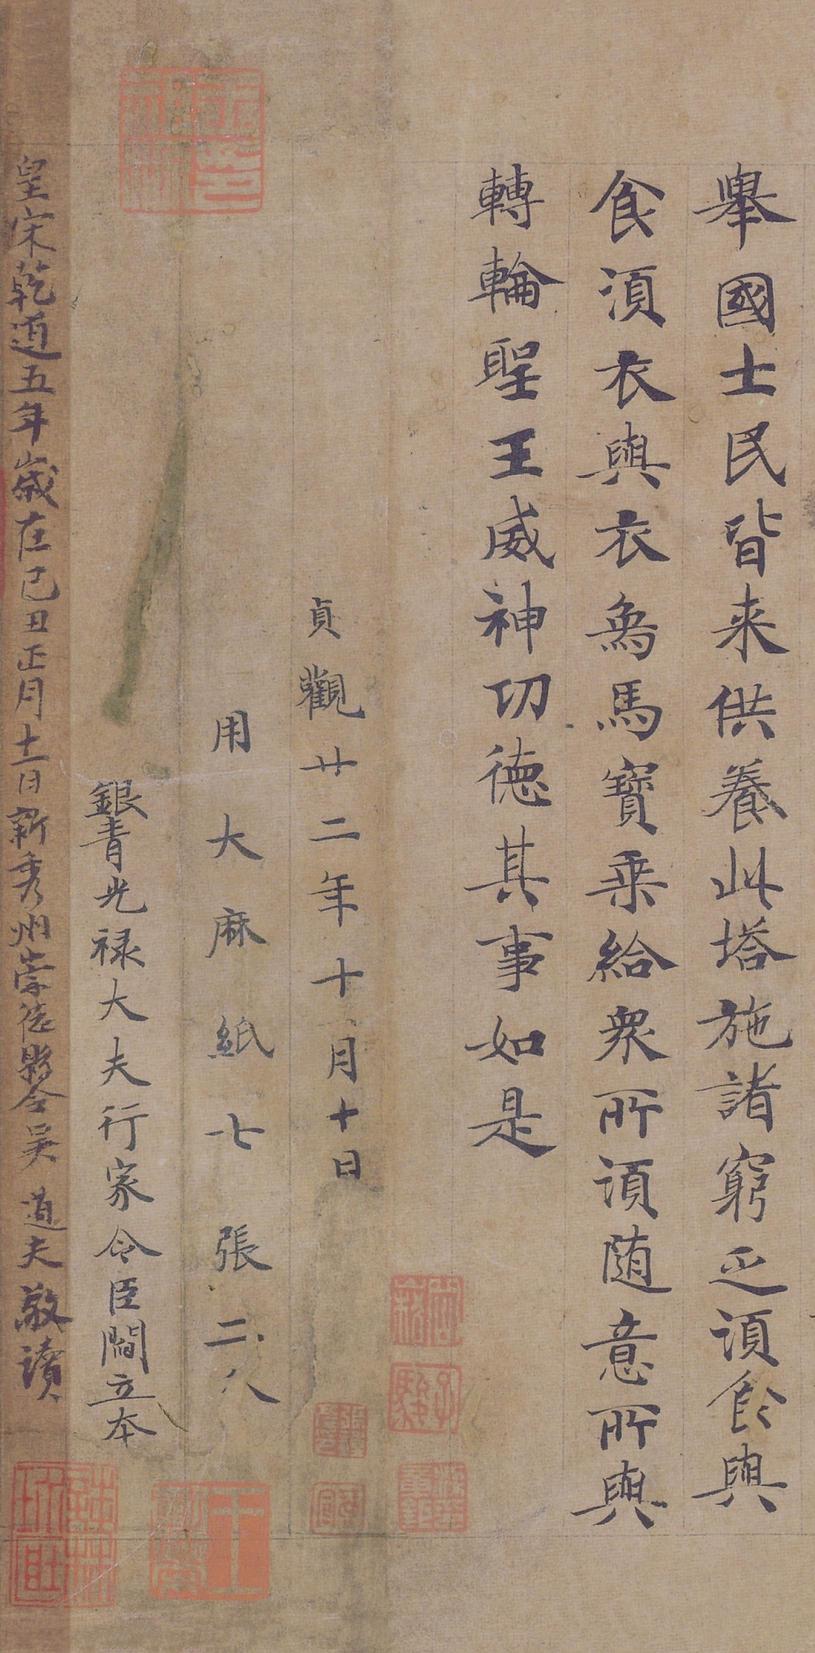 舉國士民皆来供養此塔施諸窮乏湏食與
食湏衣與衣象馬寶乗給衆所湏随意所與
轉輪聖王威神功徳其事如是
貞觀廿二年十月十日
用大麻紙七張二分
銀青光禄大夫行家令臣閻立本
皇宋乾道五年歲在己丑正月十一日新秀州崇德縣令吴道夫敬讀